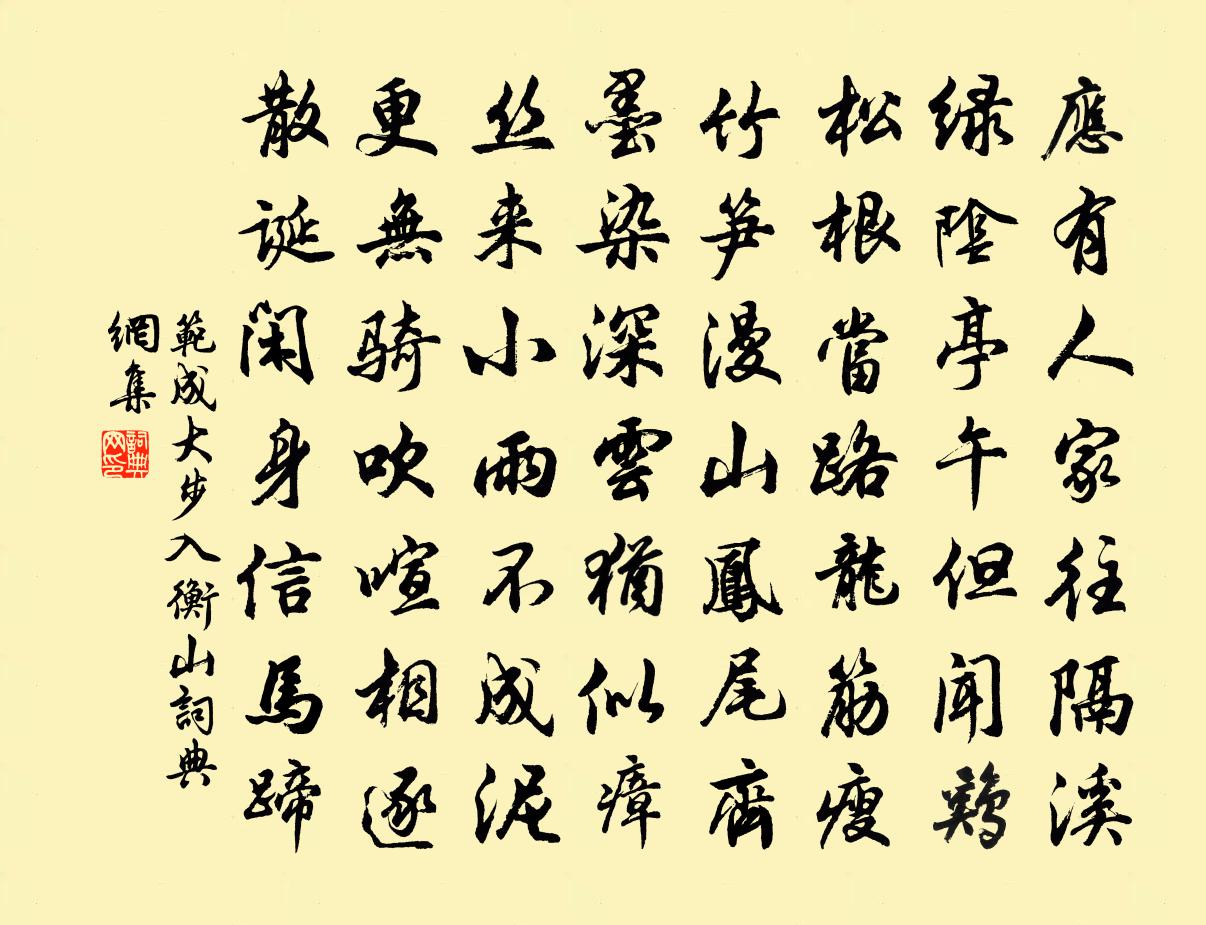 應有人家往隔溪
緑陰亭午但聞鷄
松根當路龍筋瘦
竹笋漫山鳳尾齊
墨染深雲猶似瘴
丝来小雨不成泥
更無騎吹喧相逐
散誕閑身信馬蹄
範成大步入衡山詞典
網集
詞典网印